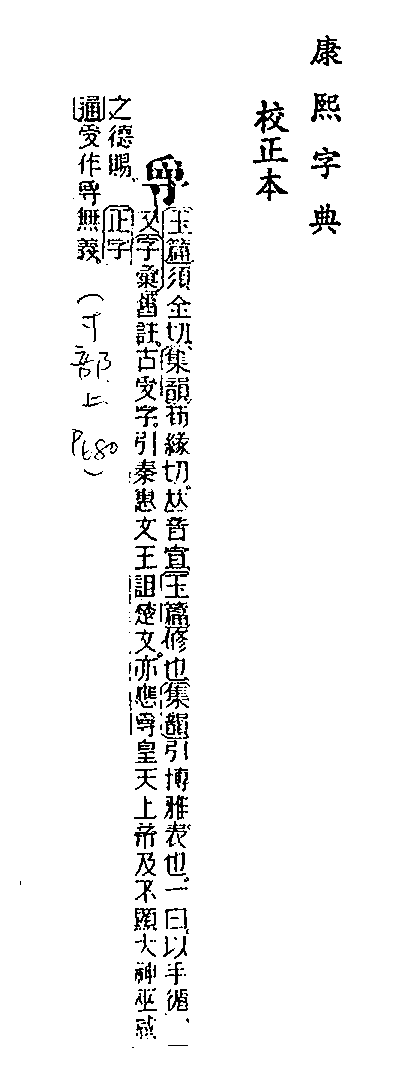 康熙字典
校正本
玉篇須全切集韻荀緣切𠀤音宣玉篇修也集韻引博雅表也一曰以手循一
又字彙舊註古受字引秦惠文王詛楚文亦應皇天上帝及不顯大神巫咸
之德賜正字
通受作無義
(寸部上 P580)